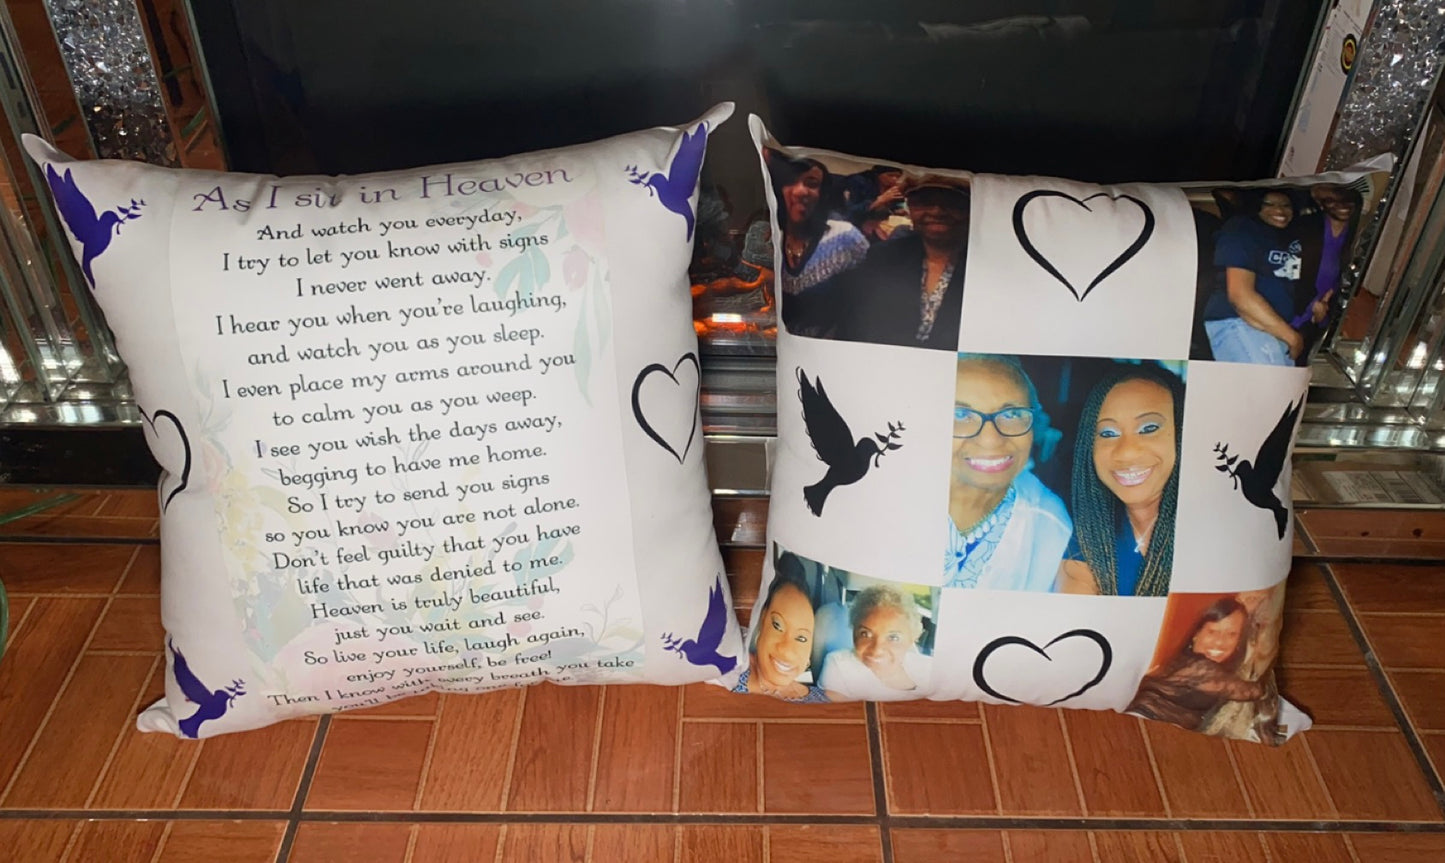 As I sit in Heaven
And watch you everyday,
I try to let you know with signs
I never went away.
I hear you when you're laughing,
and watch you as you sleep.
I even place my arms around you
to calm you as you weep.
I see you wish the days away,
begging to have me home.
So I try to send you signs
so you know you are not alone.
Don't feel guilty that you have
life that was denied to me.
Heaven is truly beautiful,
just you wait and see.
So live your life, laugh again,
enjoy yourself, be free!
Then I know with every breath you take
you'll be taking one for